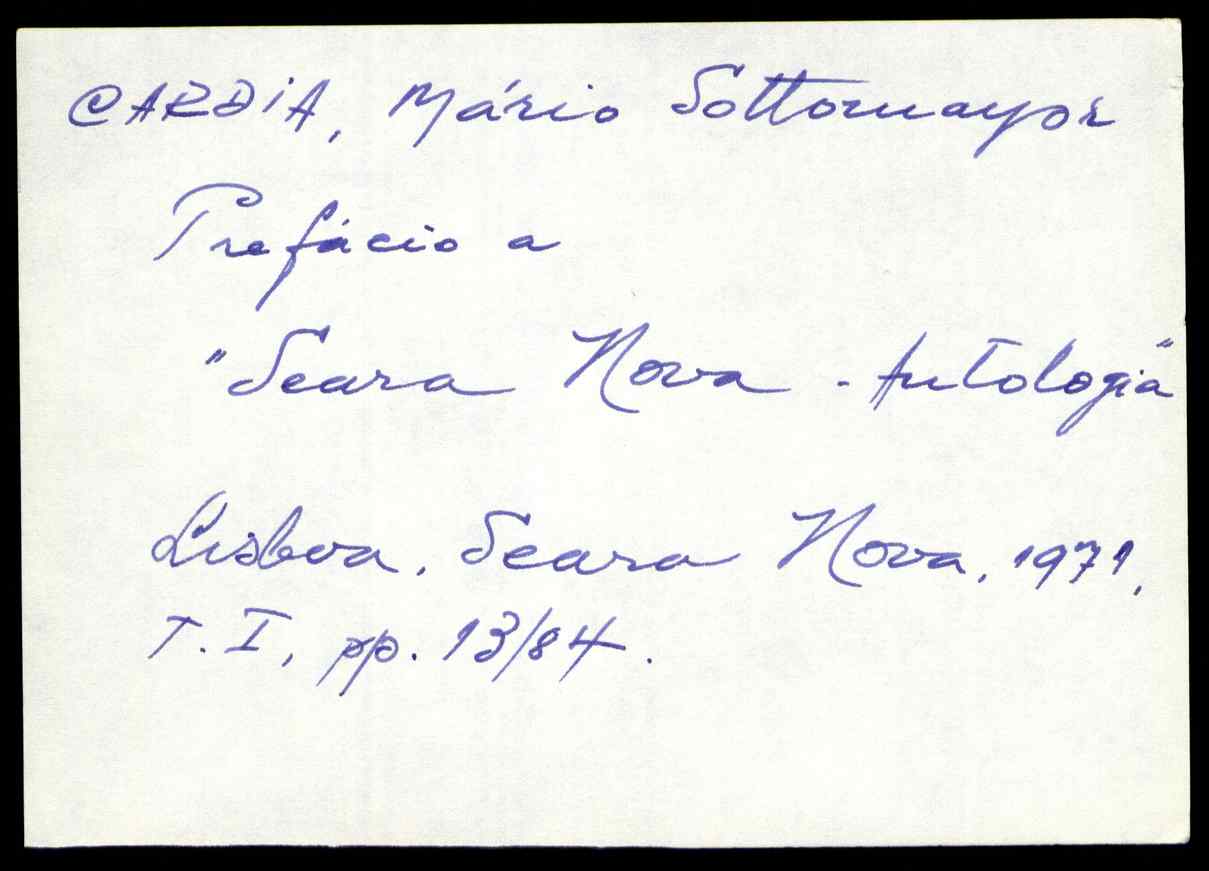 CARDIA, Mário Sottomayor
Prefácio a
"Seara Nova - Antologia"
Lisboa, Seara Nova, 1971,
T. I, pp. 13/84.